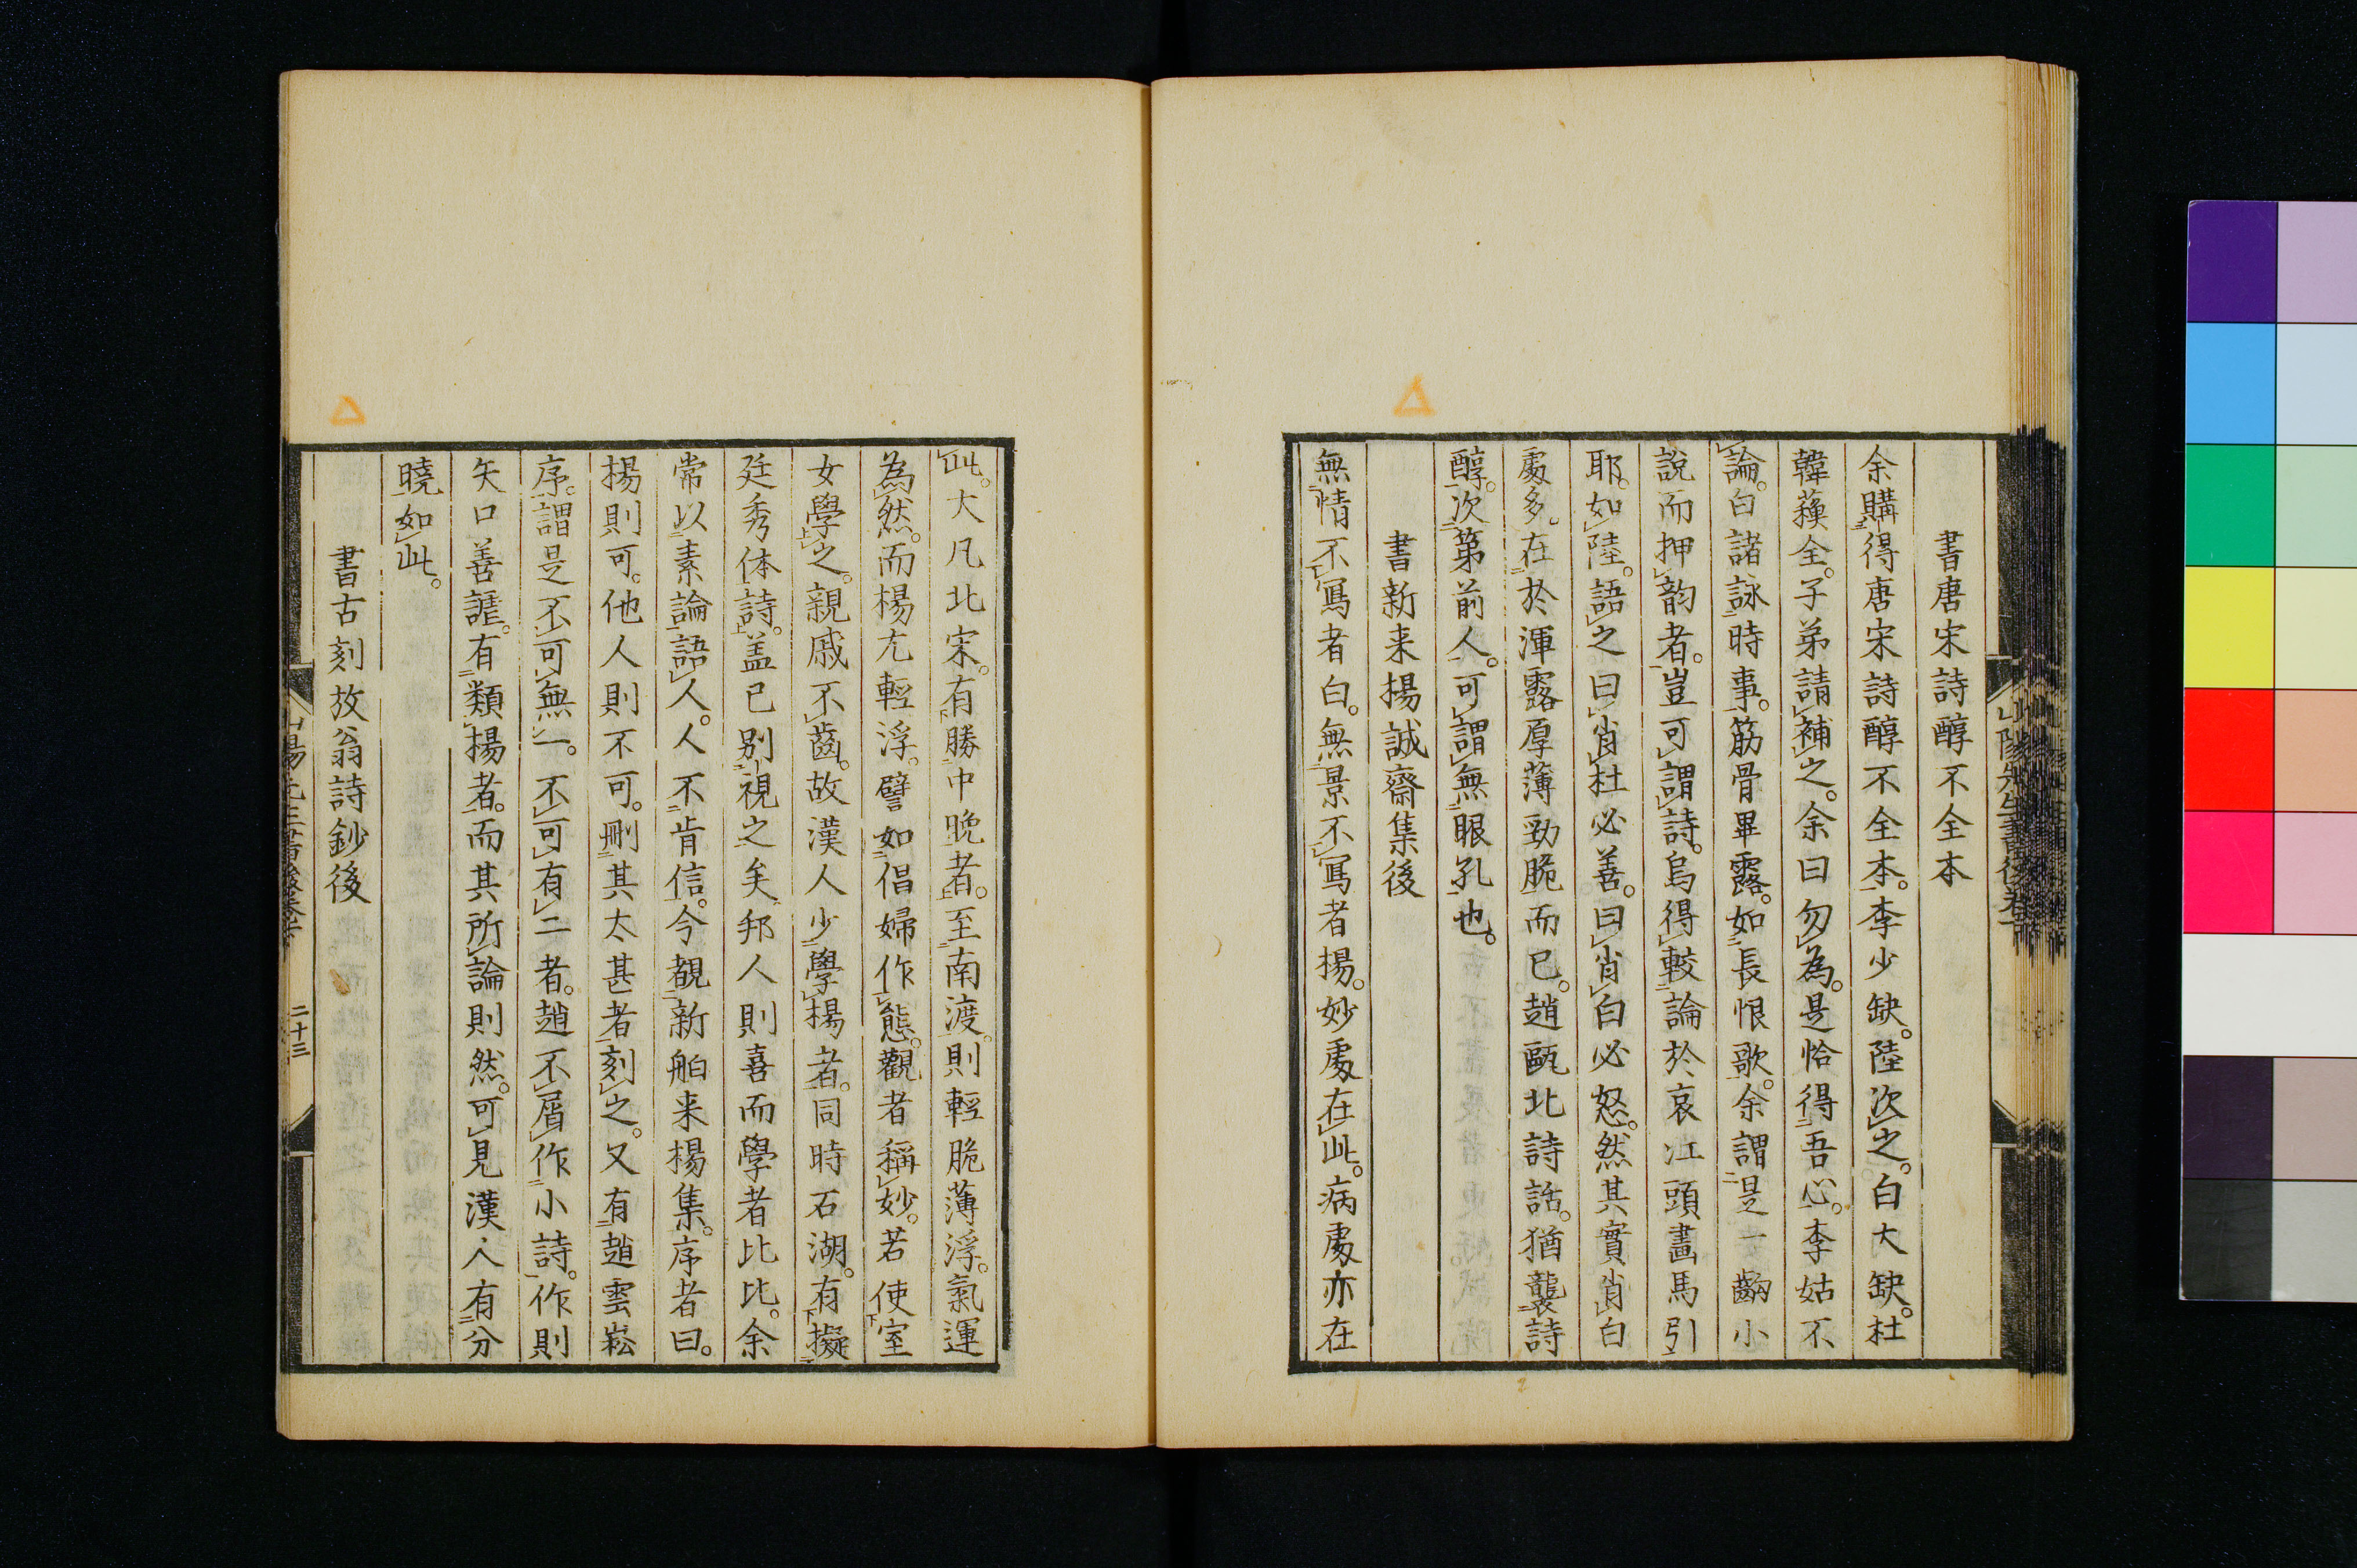 書唐宋詩醇不全本
余購得唐宋詩醇不全本。李少缺。陸次之。白大缺。杜
韓蘓全。子弟請補之。余曰勿為。是恰得吾心。李姑不
論。白諸詠時事。筋骨畢露。如長恨歌。余謂是一齣小
說而押韵者。豈可謂詩。烏得較論於哀江頭畫馬引
耶。如陸。語之曰肖杜必善。曰肖白必怒。然其實肖白
處多。在於渾露厚薄勁脆而已。趙甌北詩話。猶襲詩
醇。次第前人。可謂無眼孔也。
書新来楊誠齋集後
無情不寫者白。無景不寫者楊。妙處在此。病處亦在
此。大凡北宋。有勝中晩者。至南渡。則輕脆薄浮。氣運
為然。而楊尤輕浮。譬如倡婦作態。觀者稱妙。若使室
女學之。親戚不齒。故漢人少學楊者。同時石湖。有擬
廷秀体詩。盖已别視之矣。邦人則喜而學者比比。余
常以素論語人。人不肯信。今覩新舶来楊集。序者曰。
楊則可。他人則不可。刪其太甚者刻之。又有趙雲崧
序。謂是不可無一。不可有二者。趙不屑作小詩。作則
矢口善謔。有類楊者。而其所論則然。可見漢人有分
曉如此。
書古刻放翁詩鈔後
二十三